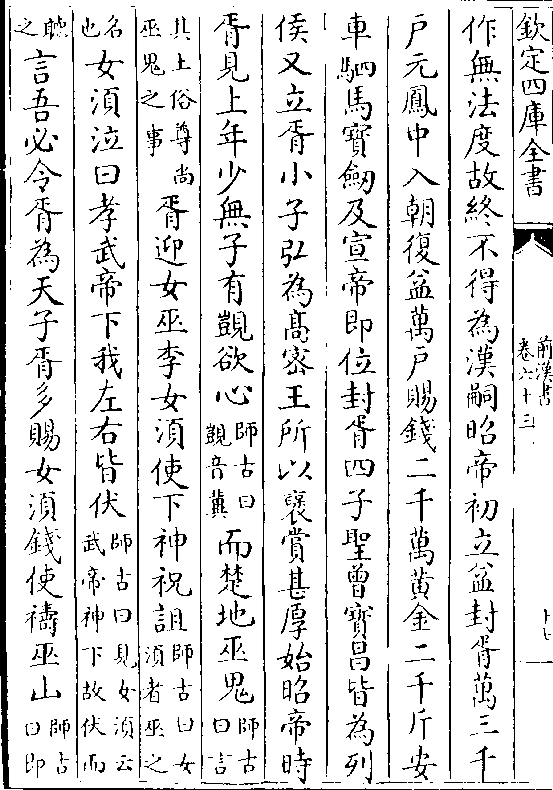 欽定四庫全書
前漢書
卷六十三
十七
作無法度故終不得為漢嗣昭帝初立益封胥萬三千
戶元鳳中入朝復益萬戶賜錢二千萬黃金二千斤安
車駟馬寳劒及宣帝即位封胥四子聖曽寳昌皆為列
侯又立胥小子弘為髙宻王所以褒賞甚厚始昭帝時
胥見上年少無子有覬欲心師古曰覬音冀而楚地巫鬼師古曰言
其土俗尊尚巫鬼之事胥迎女巫李女須使下神祝詛師古曰女須者巫之
名也女須泣曰孝武帝下我左右皆伏師古曰見女須云武帝神下故伏而
聴之言吾必令胥為天子胥多賜女須錢使禱巫山師古曰即